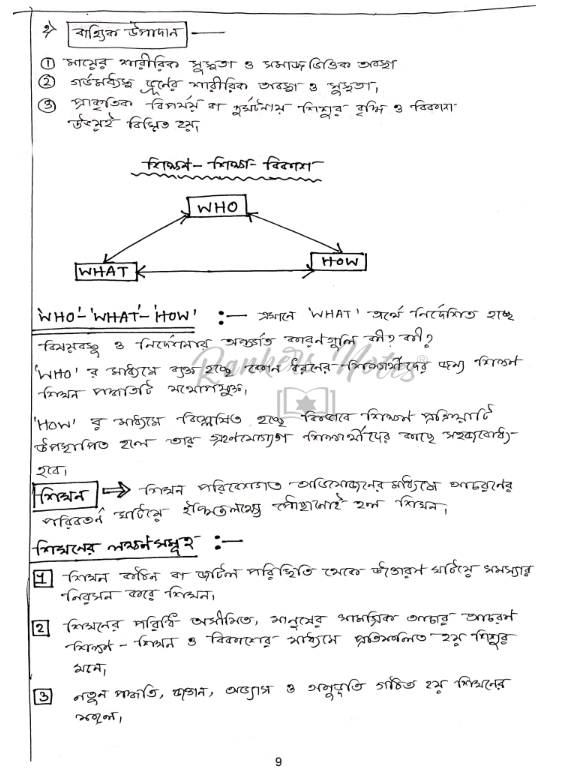 ২) বাহ্যিক উপাদান :—
① মায়ের শারীরিক সুস্থতা ও সমাজভিত্তিক অবস্থা
② গর্ভমধ্যস্থ ভ্রূনের শারীরিক অবস্থা ও সুস্থতা,
③ প্রাকৃতিক বিপর্যয় বা দুর্ঘটনায় শিশুর বৃদ্ধি ও বিকাশ
উভয়ই বিঘ্নিত হয়,
শিক্ষন – শিক্ষা – বিকাশ
WHO
WHAT
HOW
'WHO'-'WHAT'-'HOW' :— এখানে 'WHAT' অর্থে নির্দেশিত হচ্ছে
বিষয়বস্তু ও নির্দেশনার অন্তর্গত কারণগুলি কী? কী?
'WHO' র মাধ্যমে ব্যক্ত হচ্ছে কোন ধরনের শিক্ষার্থীদের জন্য শিক্ষন
শিখন পদ্ধতিটি যথোপযুক্ত,
'HOW' র মাধ্যমে বিশ্লেষিত হচ্ছে কিভাবে শিক্ষন প্রক্রিয়াটি
উপস্থাপিত হলে তার গ্রহণযোগ্যতা শিক্ষার্থীদের কাছে সহজবোধ্য
হবে।
শিখন ⇒ শিখন পরিবেশগত অভিযোজনের মাধ্যমে আচরণের
পরিবর্তন ঘটিয়ে পৌঁছানোই হল শিখন,
শিখনের লক্ষণসমূহ :—
1 শিখন কঠিন বা জটিল পরিস্থিতি থেকে উত্তোরণ ঘটিয়ে সমস্যার
নিরসন করে শিখন,
2 শিখনের পরিধি অসীমিত, মানুষের সামগ্রিক আচার আচরণ
শিক্ষন – শিখন ও বিকাশের মাধ্যমে প্রতিফলিত হয় শিশুর
মনে,
3 নতুন পদ্ধতি, জ্ঞান, অভ্যাস ও অনুভূতি গঠিত হয় শিখনের
ফলে,
Rankers Notes
9